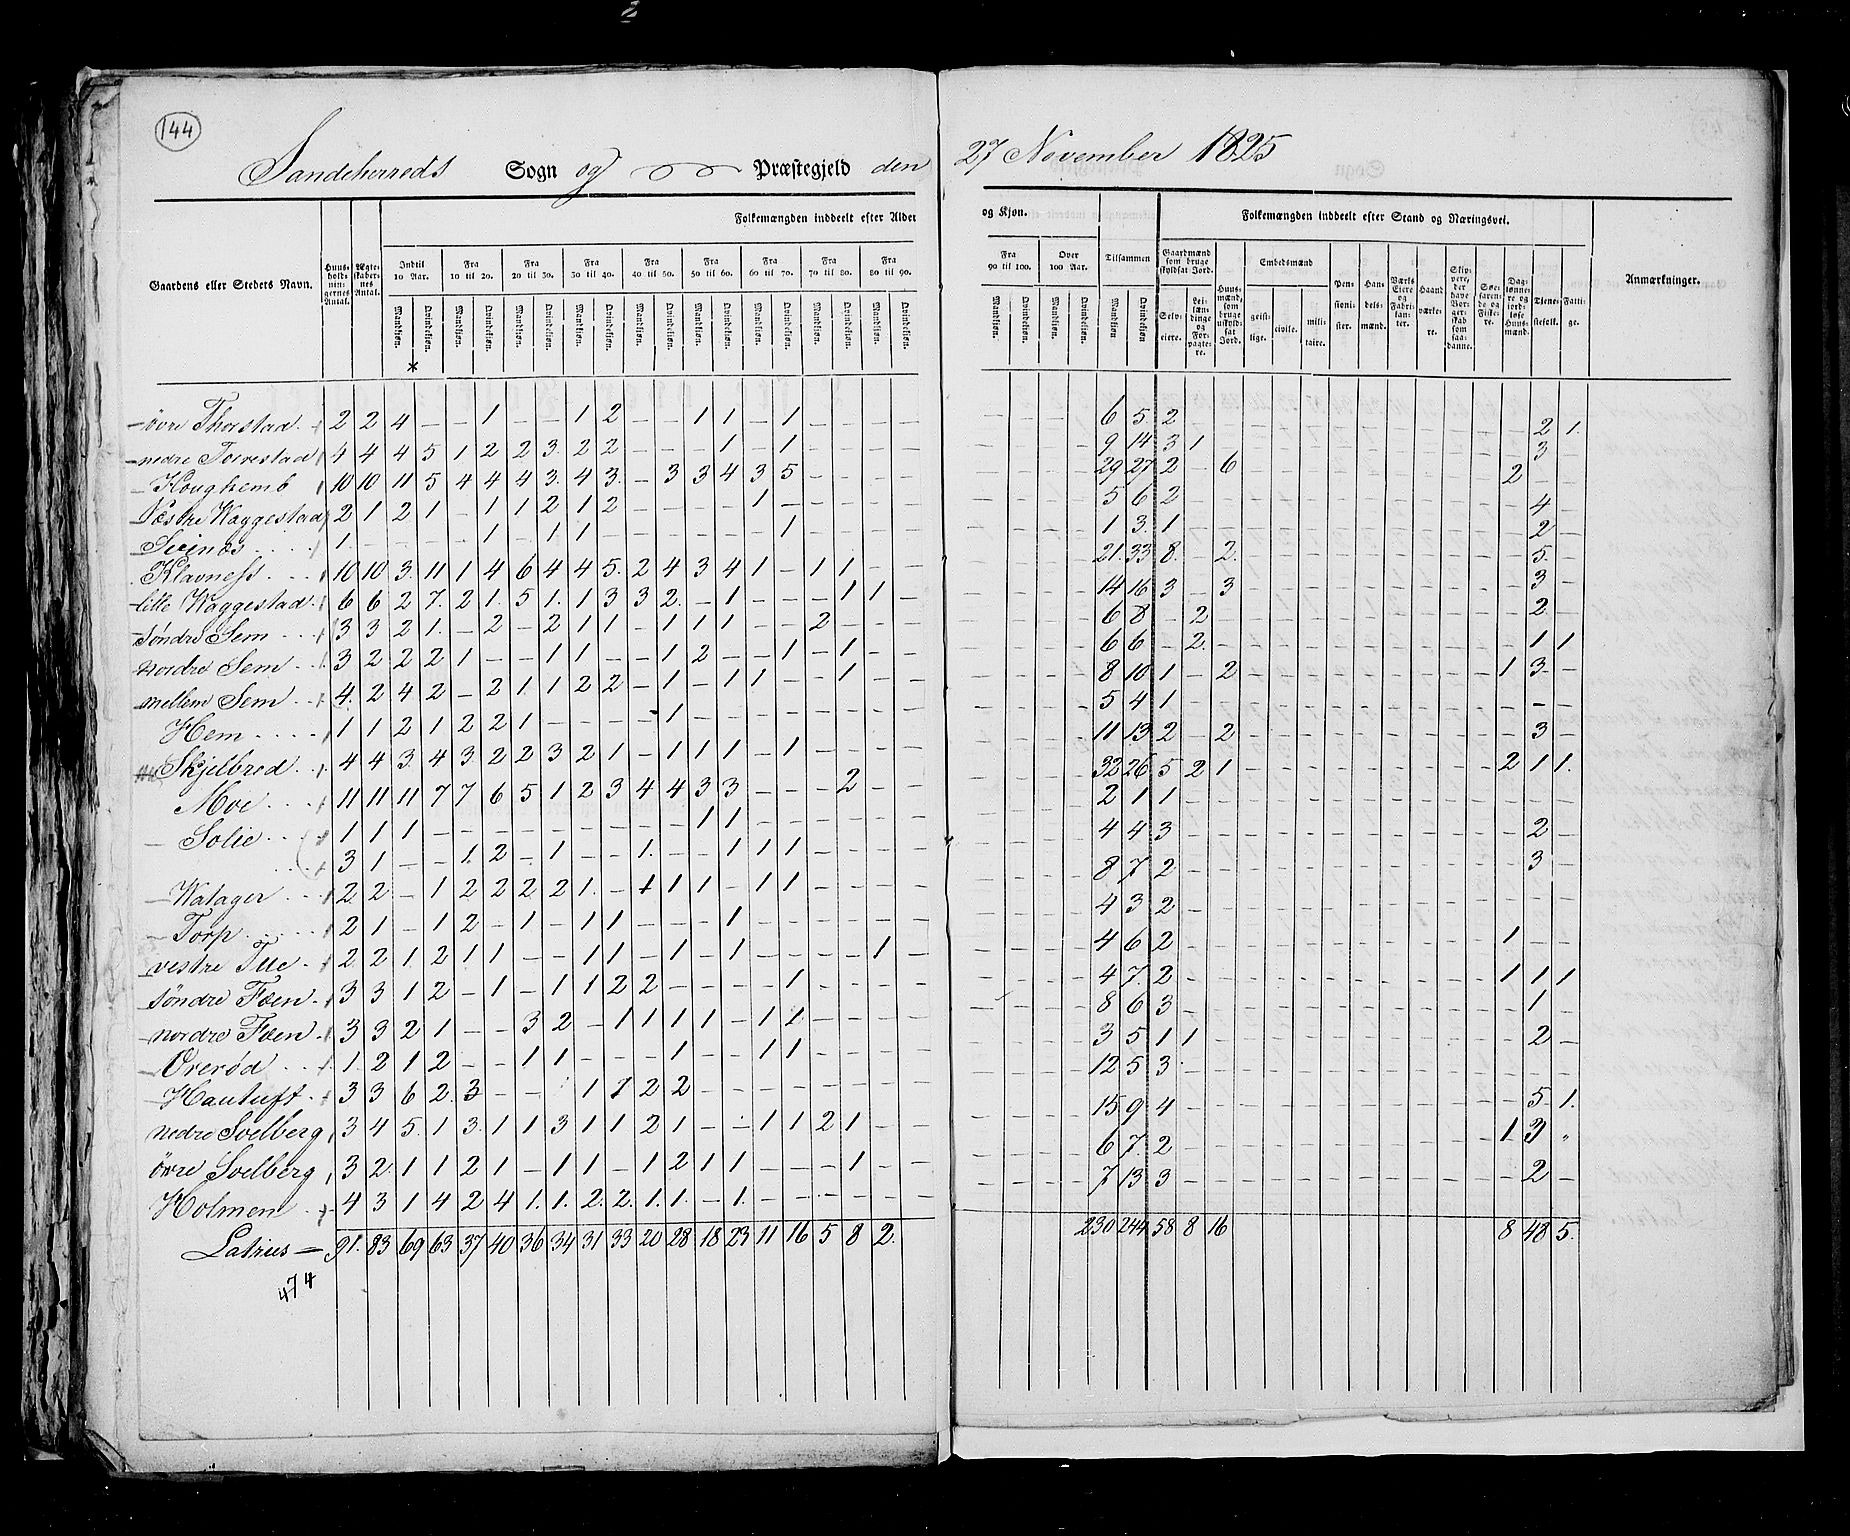 144
Sandeherreds Sogn og Præstegjeld den 27 November 1825
Gaardens eller Steders Navn.
Huusholdningernes Antal.
Ægteskabernes Antal.
Folkemængden inddeelt efter Alder og Kjøn.
Indtil 10 Aar. Fra 10 til 20. Fra 20 til 30. Fra 30 til 40. Fra 40 til 50. Fra 50 til 60. Fra 60 til 70. Fra 70 til 80. Fra 80 til 90. Fra 90 til 100. Over 100 Aar. Tilsammen
Mandkjøn. Qvindekjøn.
Folkemængden inddeelt efter Stand og Næringsvei.
Gaardmænd som bruge skyldsat Jord. Selveiere. Leilændinge og Forpagtere.
Huusmænd, som bruge uskyldsat Jord.
Embedsmænd geistlige. civile. militaire.
Pensionister. Handelsmænd. Værks Eiere og Fabrikanter. Haandværkere. Skippere, der have Borgerskab som saadanne. Søefarende og Fiskere. Daglønnere og jordløse Huusmænd. Tjenestefolk. Fattige.
Anmærkninger.
øvre Thorstad 2 2 4 – – 1 – – 1 2 – – 1 1 – 1 6 5 2 2 1.
nedre Torrestad 4 4 4 5 1 2 2 3 2 2 – – – 1 – 1 9 14 3 1 3 –
Hougkemb 10 10 11 5 4 4 4 3 4 3 – 3 3 4 3 5 29 27 2 – 6 2 – –
Vestre Waggestad 2 1 2 1 – 1 1 2 1 2 – – – – 1 – 5 6 2 4 –
1 – – – – 1 – 1 1 – – – – – – 1 1 3 1 2 –
Klavness 10 10 3 11 1 4 6 4 4 5 2 4 3 4 1 – 1 1 – – 21 33 8 – 2 5 –
lille Waggestad 6 6 2 7 2 1 5 1 1 3 3 2 – 1 – – – 1 1 – 14 16 3 – 3 3 –
søndre Sem 3 3 2 1 – 2 – 2 1 1 – 1 1 1 – – 2 – – – 6 8 – 2 2 –
nordre Sem 3 2 2 2 1 – – 1 1 – – 1 2 – – 1 – 1 – – 6 6 – 2 1 1
mellem Sem 4 2 4 2 – 2 1 1 2 2 – 1 – 1 1 – – 1 – – 8 10 1 – 2 1 3 –
Hem 1 1 2 1 2 2 1 – – – – 1 – – – – 5 4 1 – – –
Skjelbred 4 4 3 4 3 2 2 3 2 1 – 1 1 1 – 1 11 13 2 – 2 3 –
Moe 11 11 11 7 7 6 5 1 2 3 4 4 3 3 – – – 2 – – 32 26 5 2 1 2 1 1.
Solie 1 1 1 – – – – – – – – – 1 1 – – 2 1 1
3 1 – – 1 2 – 1 – – 1 – – 1 1 1 4 4 3 2 –
Watager 2 2 – 1 2 2 2 2 1 – 1 1 1 – 1 1 8 7 2 3 –
Torp 2 1 – 1 2 – 1 – 1 1 – – – 1 – – 4 3 2
vestre Tue 2 2 1 2 1 1 – – 1 1 – 1 – 1 – – – – 1 – 4 6 2 1 – –
søndre Foen 3 3 1 2 – 1 – 1 1 2 2 – – – – 1 4 7 2 1 1 1
nordre Foen 3 3 2 1 – – 3 2 – 1 1 1 1 – 1 1 8 6 3 1 –
Orerød 1 2 1 2 – – 1 1 – – – 1 – – 1 1 3 5 1 1 2 –
Hautuft 3 3 6 2 3 – – – 1 1 2 2 – – – – 12 5 3
nedre Soelberg 3 4 5 1 3 1 1 3 1 1 2 1 – – 1 1 2 1 – – 15 9 4 5 1.
øvre Soelberg 3 2 1 1 2 1 – 1 1 – 1 2 1 1 – – – 1 – – 6 7 2 1 3 "
Holmen 4 3 1 4 2 4 1 1 2 2 1 1 – 1 – – 7 13 3 2 –
Latrius – 91 83 69 63 37 40 36 34 31 33 20 28 18 23 11 16 5 8 2 230 244 58 8 16 8 48 5.
474